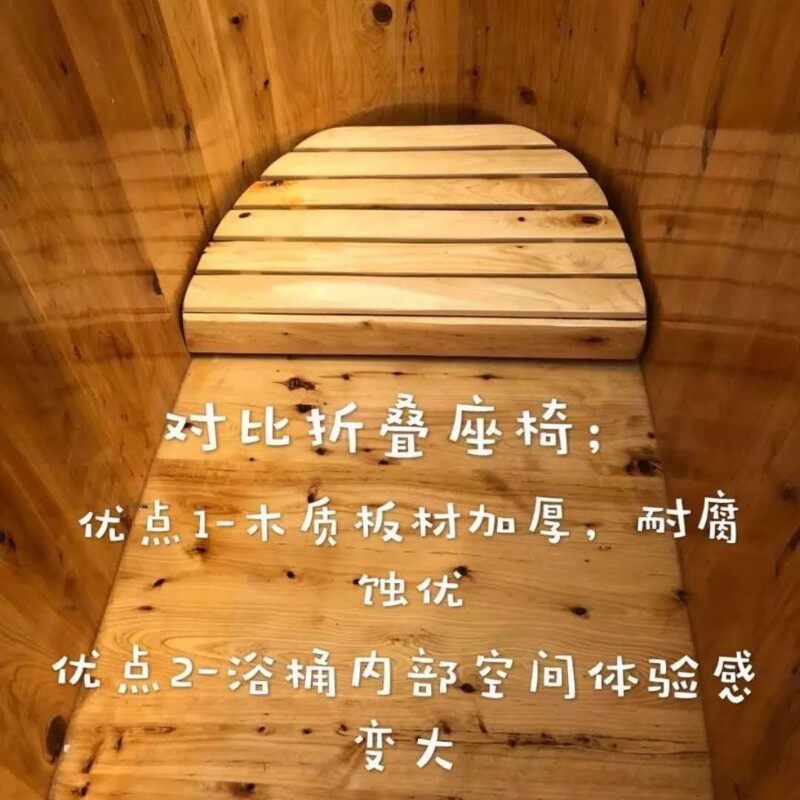 对比折叠座椅；
优点1-木质板材加厚，耐腐
蚀优
优点2-浴桶内部空间体验感
变大